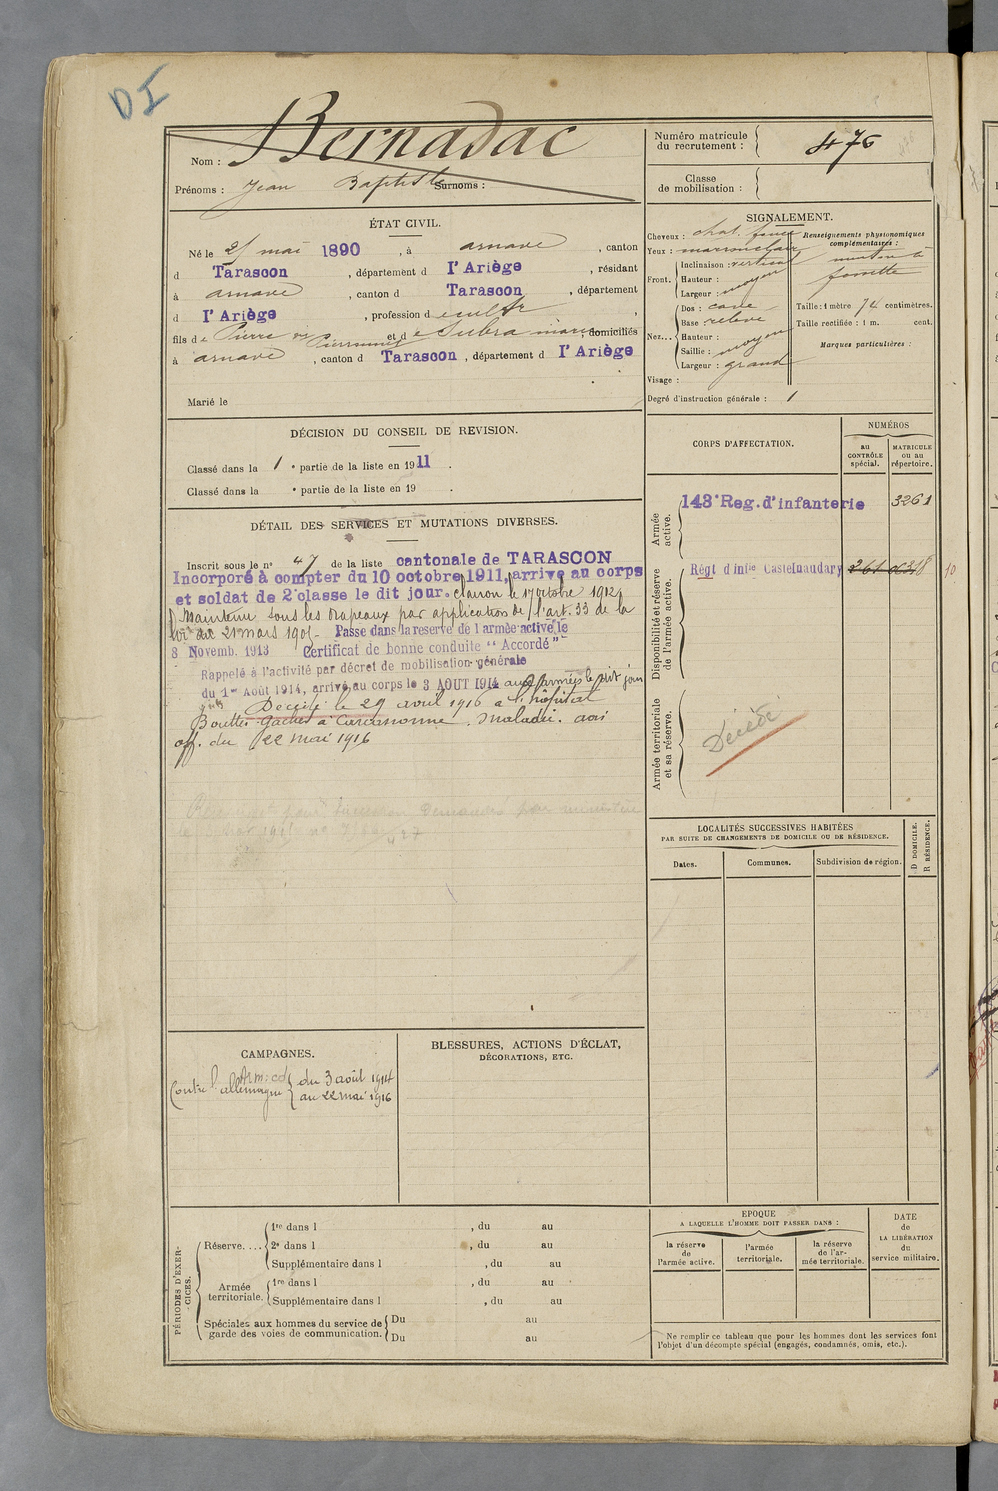 DI
Nom : Bernadac
Prénoms : Jean Baptiste Surnoms :
Numéro matricule
du recrutement : 476
Classe
de mobilisation :
ÉTAT CIVIL.
Né le 25 mai 1890, à arnave, canton
d Tarascon, département d l'Ariège, résidant
à arnave, canton d Tarascon, département
d l'Ariège, profession d cultr
fils de Pierre et de Subra marie domiciliés
à arnave, canton d Tarascon, département d l'Ariège
Marié le
SIGNALEMENT.
Cheveux : chat. foncé
Yeux : marron clair
Front. Inclinaison : vertical
Hauteur :
Largeur : moyen
Nez... Dos : cave
Base : relevé
Hauteur :
Saillie : moyen
Largeur : grand
Visage :
Renseignements physionomiques
complémentaires :
menton à
fossette
Taille : 1 mètre 74 centimètres.
Taille rectifiée : 1 m. cent.
Marques particulières :
Degré d'instruction générale : 1
DÉCISION DU CONSEIL DE REVISION.
Classé dans la 1e partie de la liste en 1911.
Classé dans la e partie de la liste en 19 .
DÉTAIL DES SERVICES ET MUTATIONS DIVERSES.
Inscrit sous le no 47 de la liste cantonale de TARASCON
Incorporé à compter du 10 octobre 1911, arrivé au corps
et soldat de 2e classe le dit jour. Clairon le 17 octobre 1912,
Maintenu sous les drapeaux par application de l'art. 33 de la
loi du 21 mars 1905. Passé dans la réserve de l'armée active le
8 Novemb. 1913 Certificat de bonne conduite "Accordé"
Rappelé à l'activité par décret de mobilisation générale
du 1er Août 1914, arrivé au corps le 3 AOUT 1914 aux armées le dit jour
Décédé le 29 avril 1916 à l'hôpital
Gaches à Carcassonne. Maladie. avis
off. du 22 mai 1916
CORPS D'AFFECTATION.
NUMÉROS
au
CONTRÔLE
spécial.
MATRICULE
ou au
répertoire.
Armée
active.
143e Reg. d'infanterie 3261
Disponibilité et réserve
de l'armée active.
Régt d'infie Castelnaudary
10
Armée territoriale
et sa réserve.
Décédé
LOCALITÉS SUCCESSIVES HABITÉES
PAR SUITE DE CHANGEMENTS DE DOMICILE OU DE RÉSIDENCE.
Dates.
Communes.
Subdivision de région.
D DOMICILE.
R RÉSIDENCE.
CAMPAGNES.
Contre l'allemagne du 3 août 1914
au 22 mai 1916
BLESSURES, ACTIONS D'ÉCLAT,
DÉCORATIONS, ETC.
PÉRIODES D'EXER-
CICES.
Réserve....
1re dans l , du au
2e dans l , du au
Supplémentaire dans l , du au
Armée
territoriale.
1re dans l , du au
Supplémentaire dans l , du au
Spéciales aux hommes du service de
garde des voies de communication.
Du au
Du au
EPOQUE
A LAQUELLE L'HOMME DOIT PASSER DANS :
la réserve
de
l'armée active.
l'armée
territoriale.
la réserve
de l'ar-
mée territoriale.
DATE
de
LA LIBÉRATION
du
service militaire.
Ne remplir ce tableau que pour les hommes dont les services font
l'objet d'un décompte spécial (engagés, condamnés, omis, etc.).